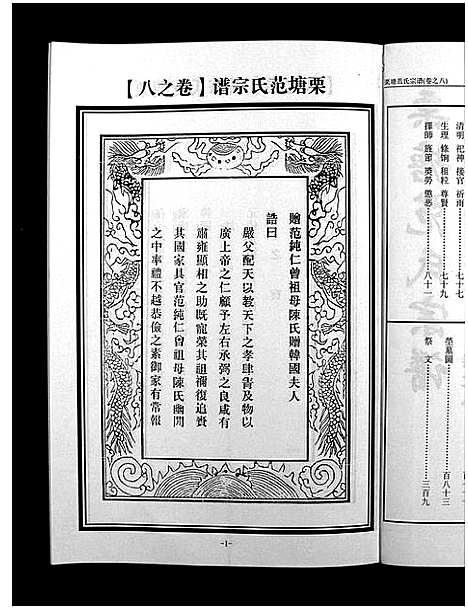 栗塘范氏宗谱(卷之八)
清明 祀神 接官 祈雨……七十九
生理 修炯 租粒 尊賢……七十九
擇師 旌節 獎勞 懲惡……八十一
塋墓圖……百八十三
祭文……三百九
栗塘范氏宗谱【卷之八】
贈范純仁曾祖母陳氏贈韓國夫人
誥曰
嚴父配天以教天下之孝肆眚及物以
廣上帝之仁顧予左右承弼之良咸有
肅雍顯相之助既寵榮其祖禰復追賚
其國家具官范純仁曾祖母陳氏幽閒
之中率禮不越恭儉之素御家有常報
-1-